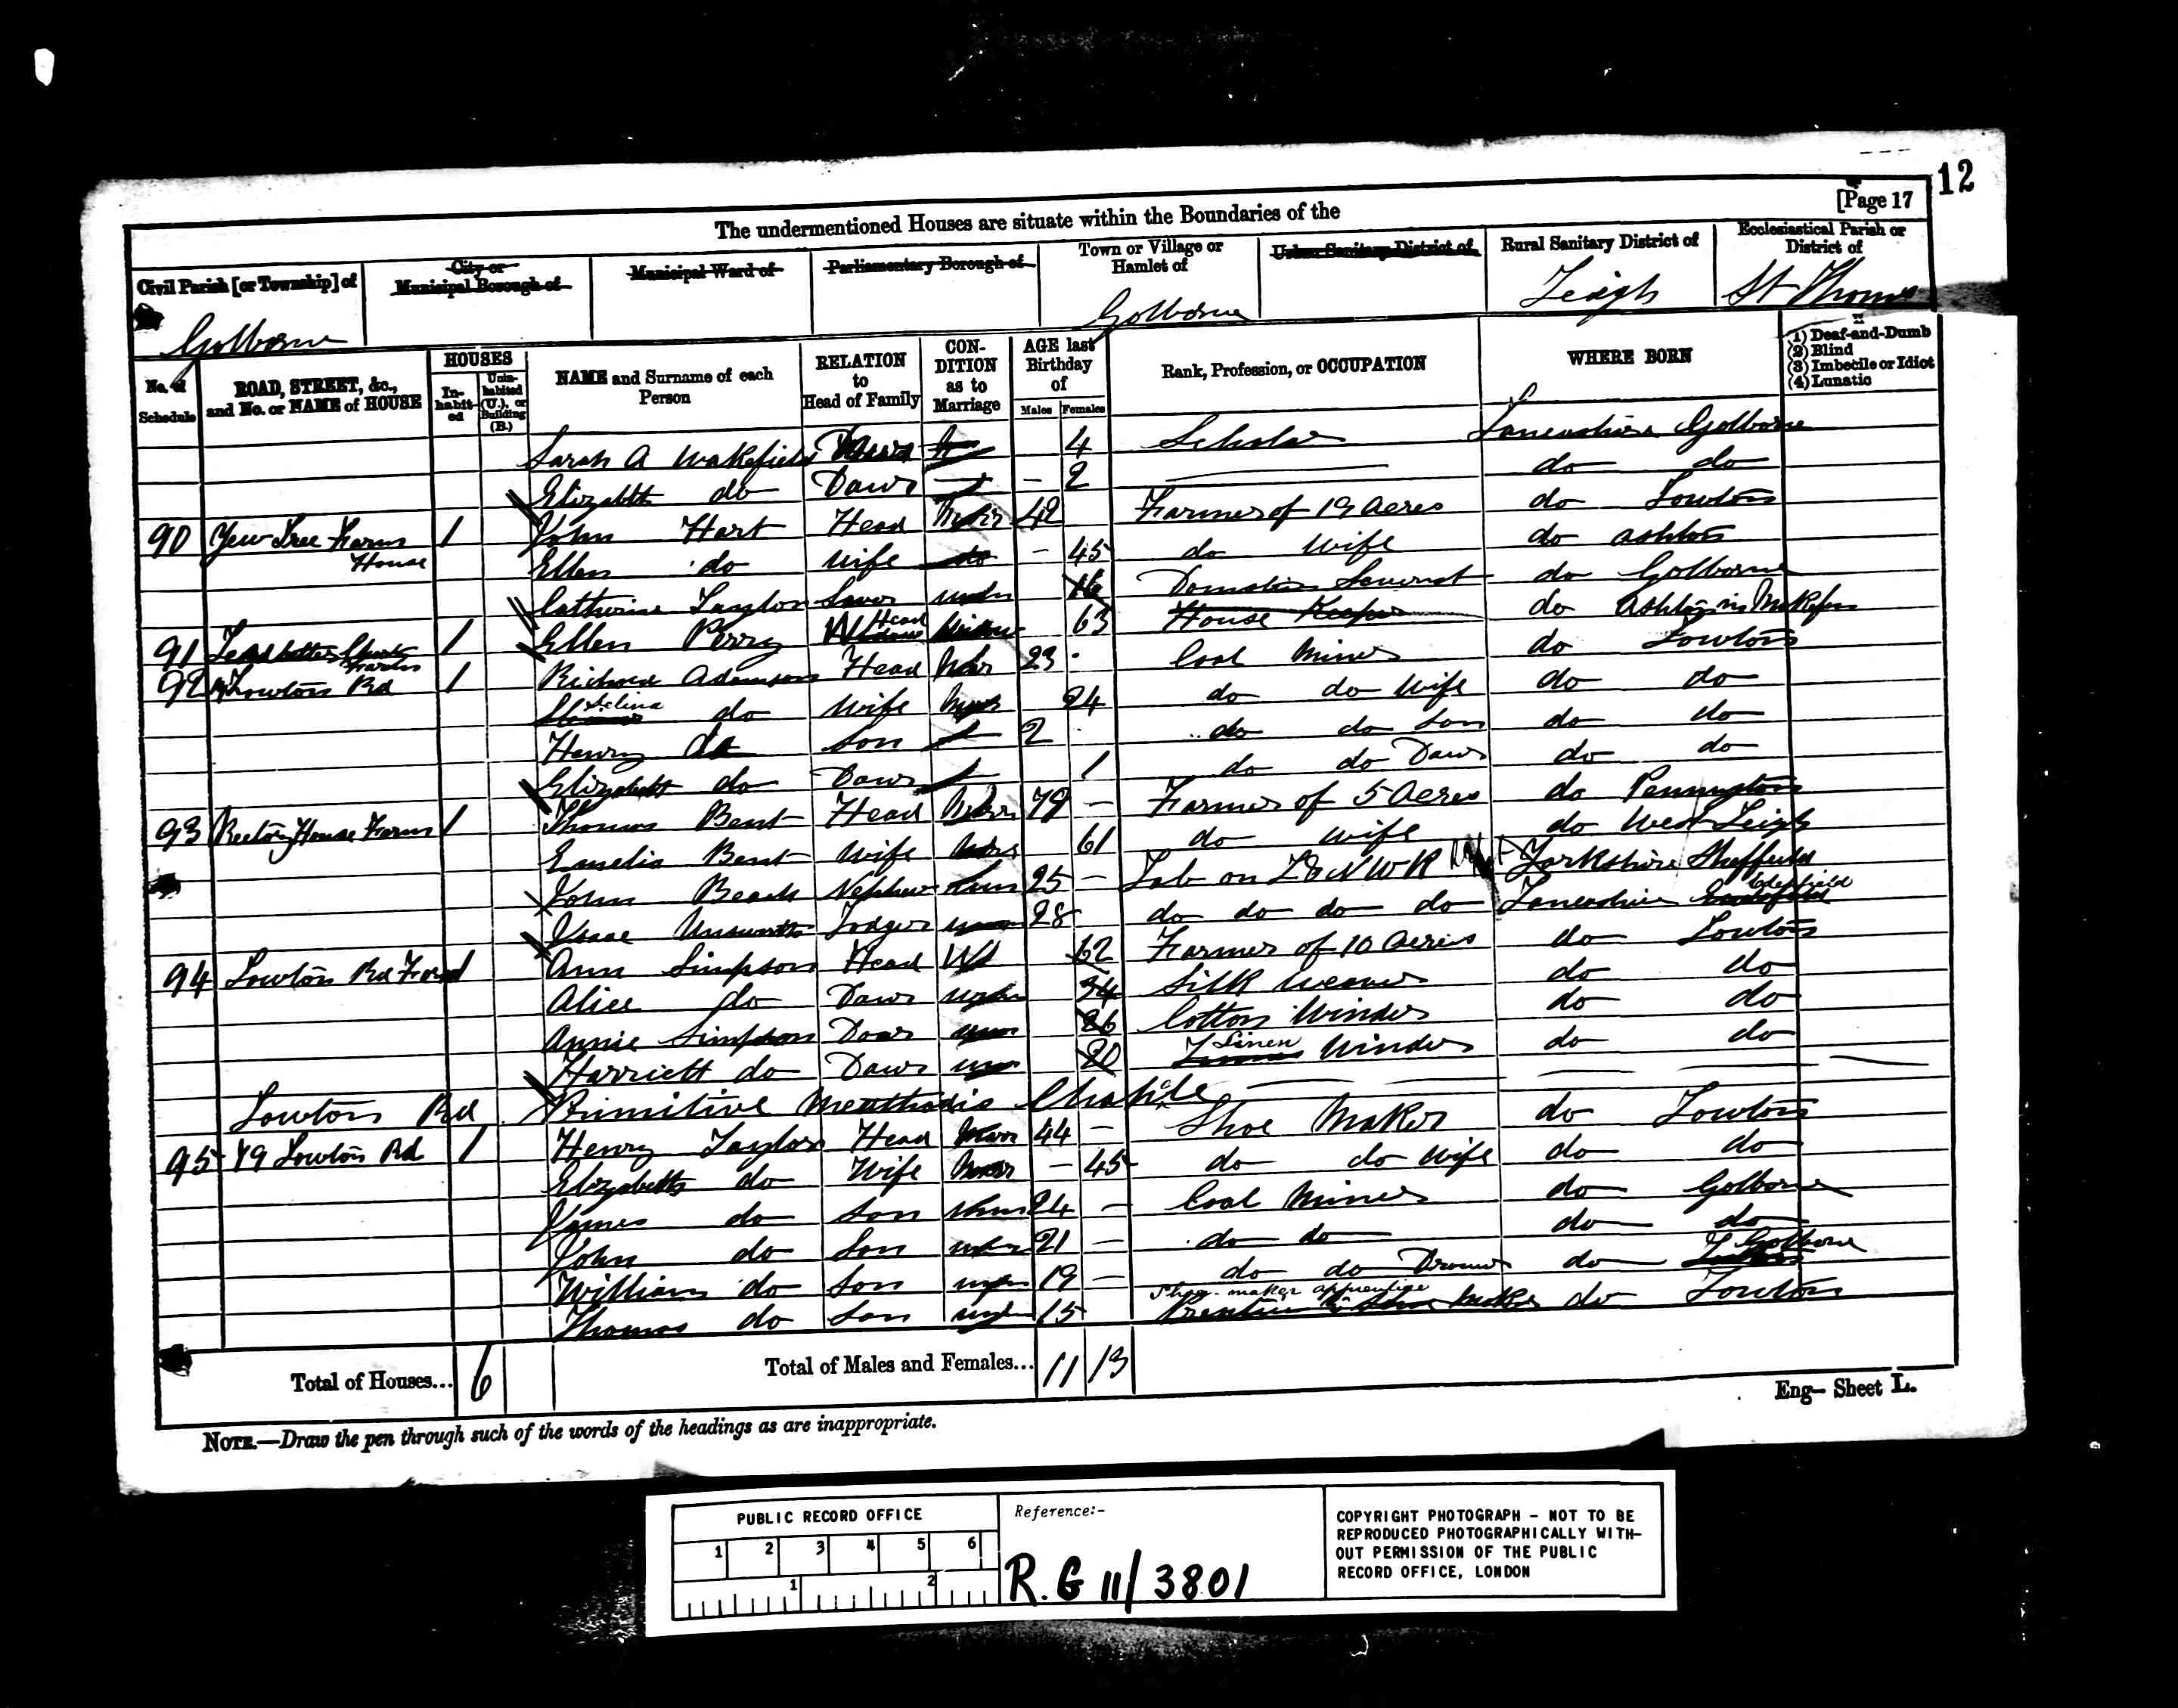 12
[Page 17
The undermentioned Houses are situate within the Boundaries of the
Civil Parish [or Township] of
City or Municipal Borough of
Municipal Ward of
Parliamentary Borough of
Town or Village or Hamlet of
Urban Sanitary District of
Rural Sanitary District of
Ecclesiastical Parish or District of
Golborne Golborne Leigh St Thomas
No. of Schedule
ROAD, STREET, &c., and No. or NAME of HOUSE
HOUSES
In-habit-ed
Unin-habited (U.), or Building (B.)
NAME and Surname of each Person
RELATION to Head of Family
CON-DITION as to Marriage
AGE last Birthday of
Males Females
Rank, Profession, or OCCUPATION
WHERE BORN
(1) Deaf-and-Dumb
(2) Blind
(3) Imbecile or Idiot
(4) Lunatic
Sarah A Wakefield Daur 4 Scholar Lancashire Golborne
Elizabeth do Daur 2 do do
90 Yew Tree Farm House 1 John Hart Head Mar 42 Farmer of 19 Acres do Lowton
Ellen do Wife do 45 do Wife do Ashton
Catherine Taylor 16 Domestic Servant do Golborne
91 1 Ellen Perry Head Widow 63 House Keeper do Ashton in
92 Lowton Rd 1 Richard Adamson Head Mar 23 Coal Miner do Lowton
Selina do Wife Mar 24 do do Wife do do
Henry do Son 2 do do Son do do
Elizabeth do Daur 1 do do Daur do do
93 Rectory House Farm 1 Thomas Bent Head Mar 79 Farmer of 5 Acres do Pennington
Emelia Bent Wife Mar 61 do Wife do West Leigh
John Nephew 25 Lab on L & N W R Yorkshire Sheffield
Isaac Unsworth Lodger 28 do do do do Lancashire
94 Lowton Rd Farm 1 Ann Simpson Head Wd 62 Farmer of 10 Acres do Lowton
Alice do Daur 34 Silk Weaver do do
Annie Simpson Daur 26 Cotton Winder do do
Harriett do Daur 20 Linen Winder do do
Lowton Rd Primitive
95 49 Lowton Rd 1 Henry Taylor Head Mar 44 Shoe Maker do Lowton
Elizabeth do Wife Mar 45 do do Wife do do
James do Son 24 Coal Miner do Golborne
John do Son 21 do do do do
William do Son 19 do do do Golborne
Thomas do Son 15 Shoe maker apprentice do Lowton
Total of Houses... 6
Total of Males and Females... 11 13
Eng— Sheet L.
NOTE.—Draw the pen through such of the words of the headings as are inappropriate.
PUBLIC RECORD OFFICE
1 2 3 4 5 6
1 2
Reference:-
R.G 11/3801
COPYRIGHT PHOTOGRAPH - NOT TO BE
REPRODUCED PHOTOGRAPHICALLY WITH-
OUT PERMISSION OF THE PUBLIC
RECORD OFFICE, LONDON